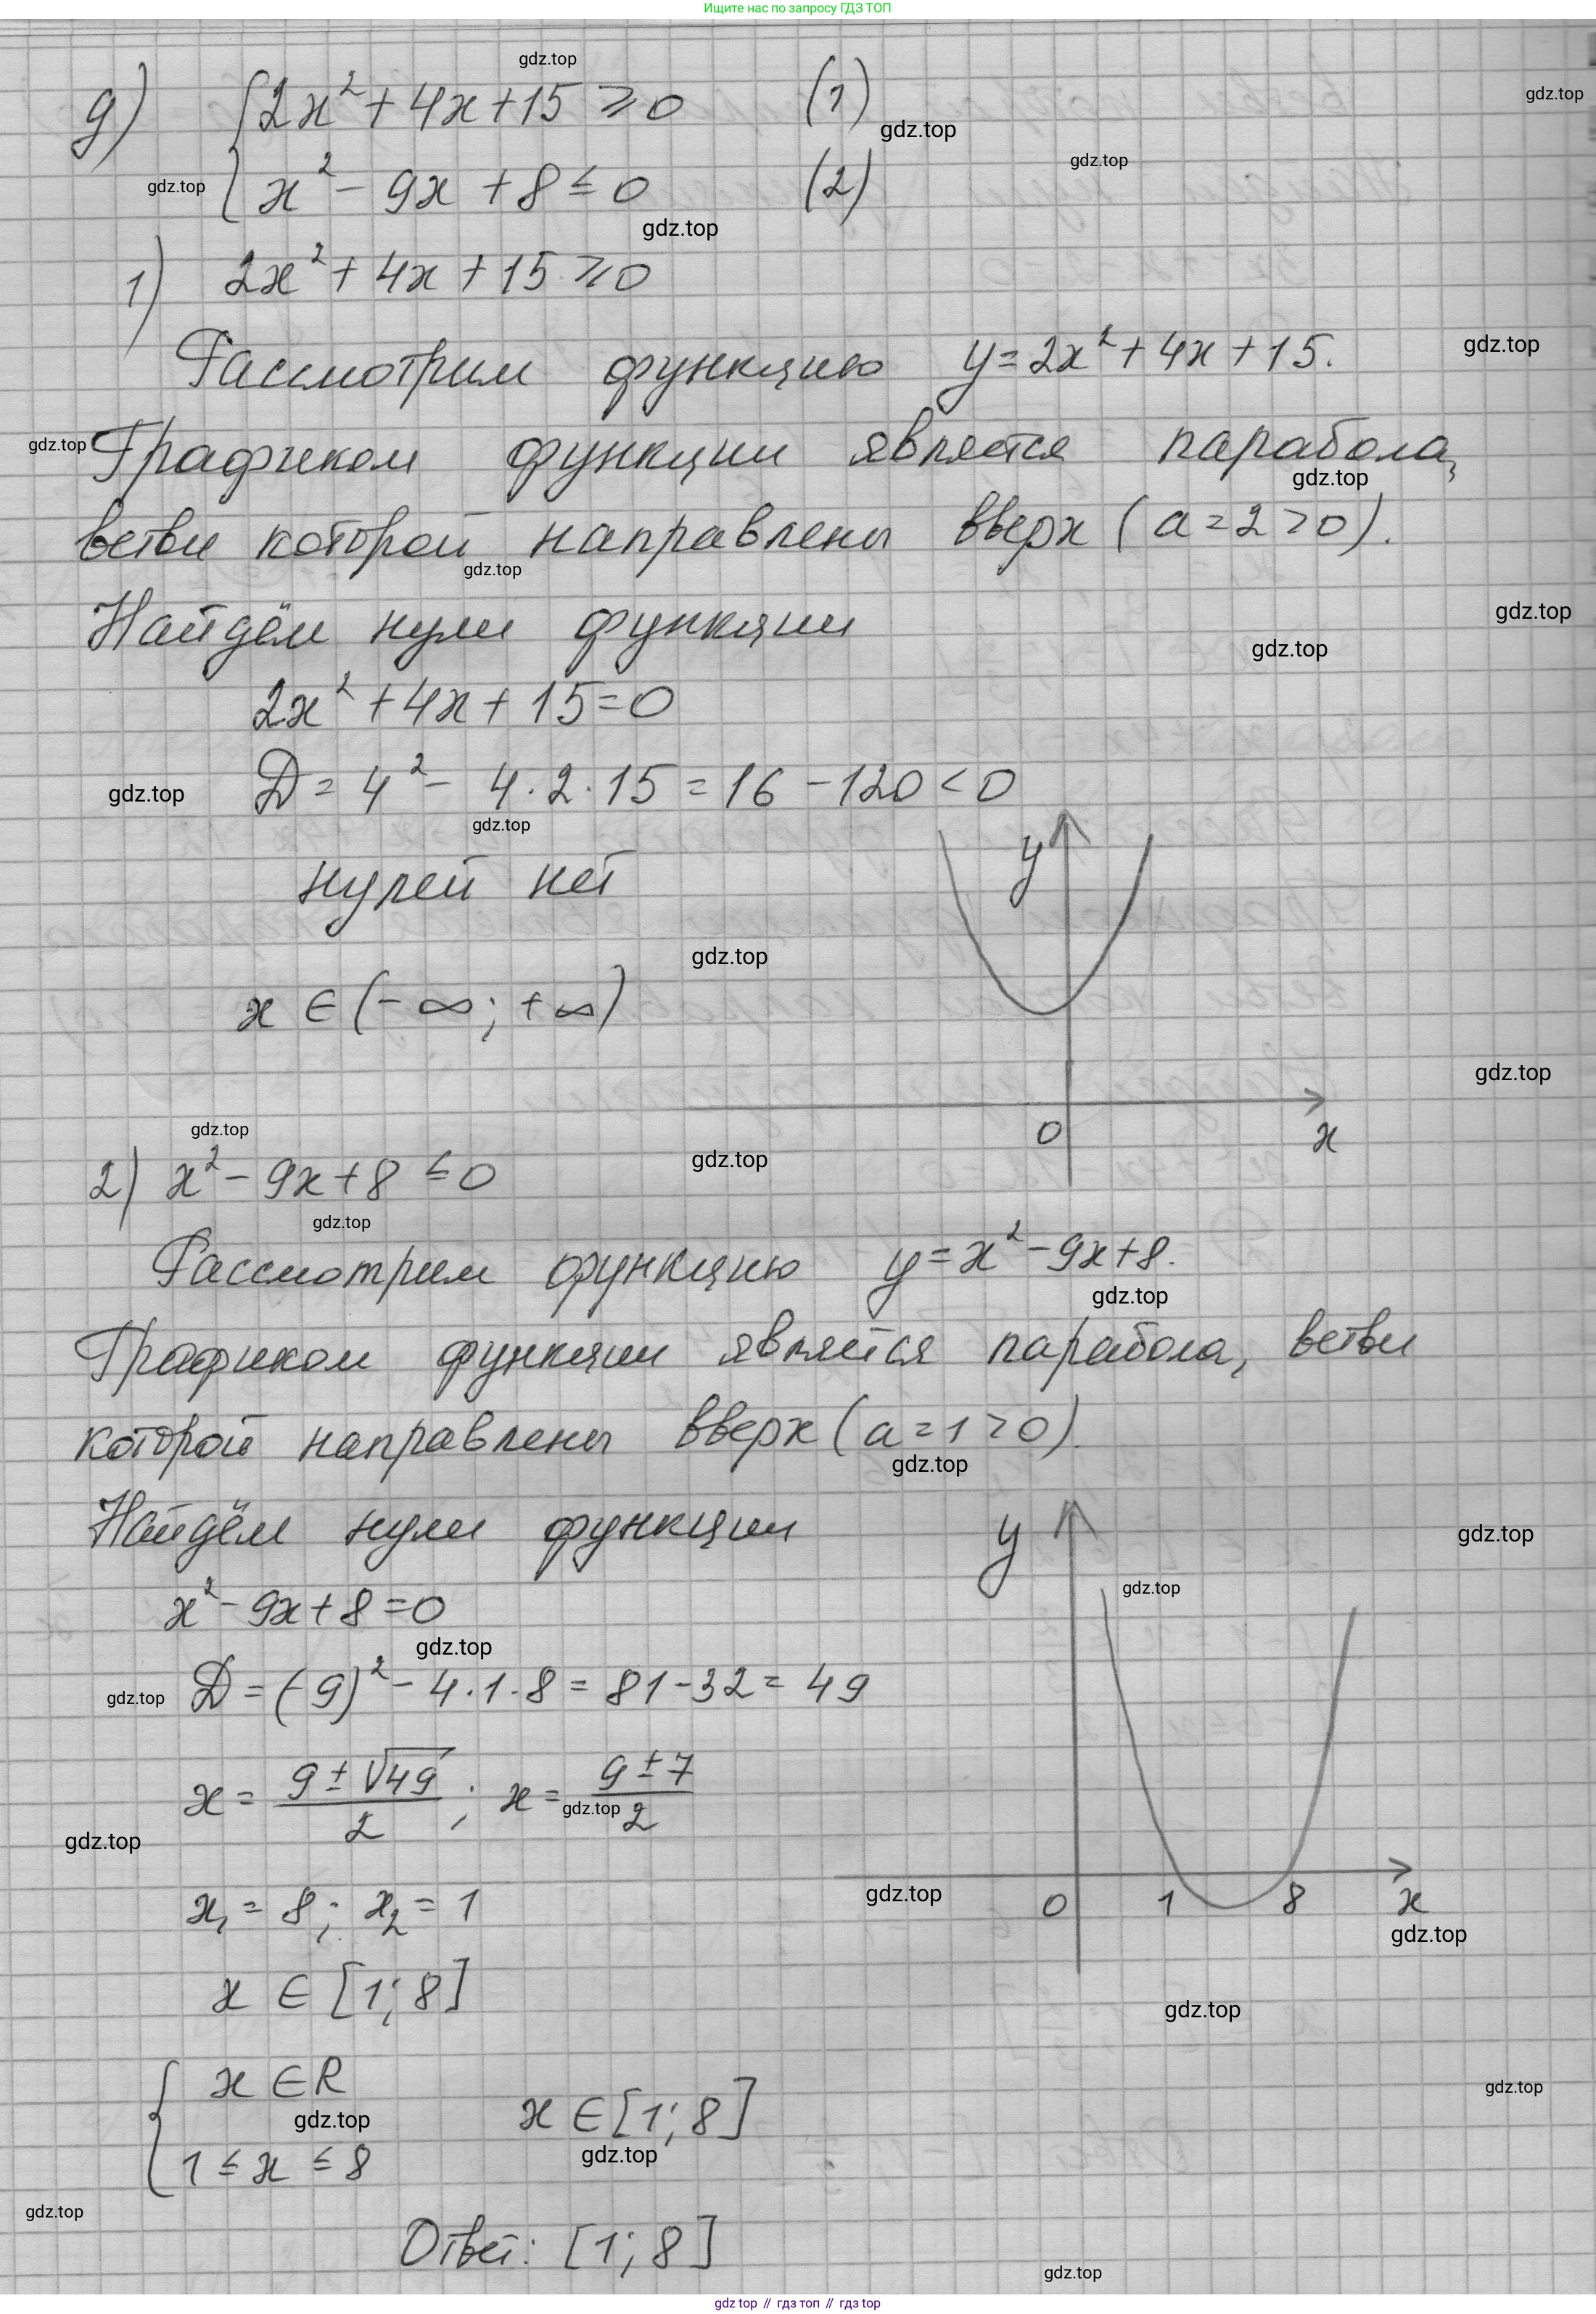 Ищите нас по запросу ГДЗ ТОП
д) {2x² + 4x + 15 ⩾ 0 (1)
{x² - 9x + 8 ≤ 0 (2)
1) 2x² + 4x + 15 ⩾ 0
Рассмотрим функцию y = 2x² + 4x + 15.
Графиком функции является парабола,
ветви которой направлены вверх (a = 2 > 0).
Найдём нули функции
2x² + 4x + 15 = 0
D = 4² - 4·2·15 = 16 - 120 < 0
нулей нет
y
x ∈ (-∞; +∞)
0 x
2) x² - 9x + 8 ≤ 0
Рассмотрим функцию y = x² - 9x + 8.
Графиком функции является парабола, ветви
которой направлены вверх (a = 1 > 0).
Найдём нули функции
y
x² - 9x + 8 = 0
D = (-9)² - 4·1·8 = 81 - 32 = 49
x = (9 ± √49)/2; x = (9 ± 7)/2
x₁ = 8; x₂ = 1
0 1 8 x
x ∈ [1; 8]
{x ∈ R
{1 ≤ x ≤ 8
x ∈ [1; 8]
Ответ: [1; 8]
gdz.top
gdz top // гдз топ // гдз top